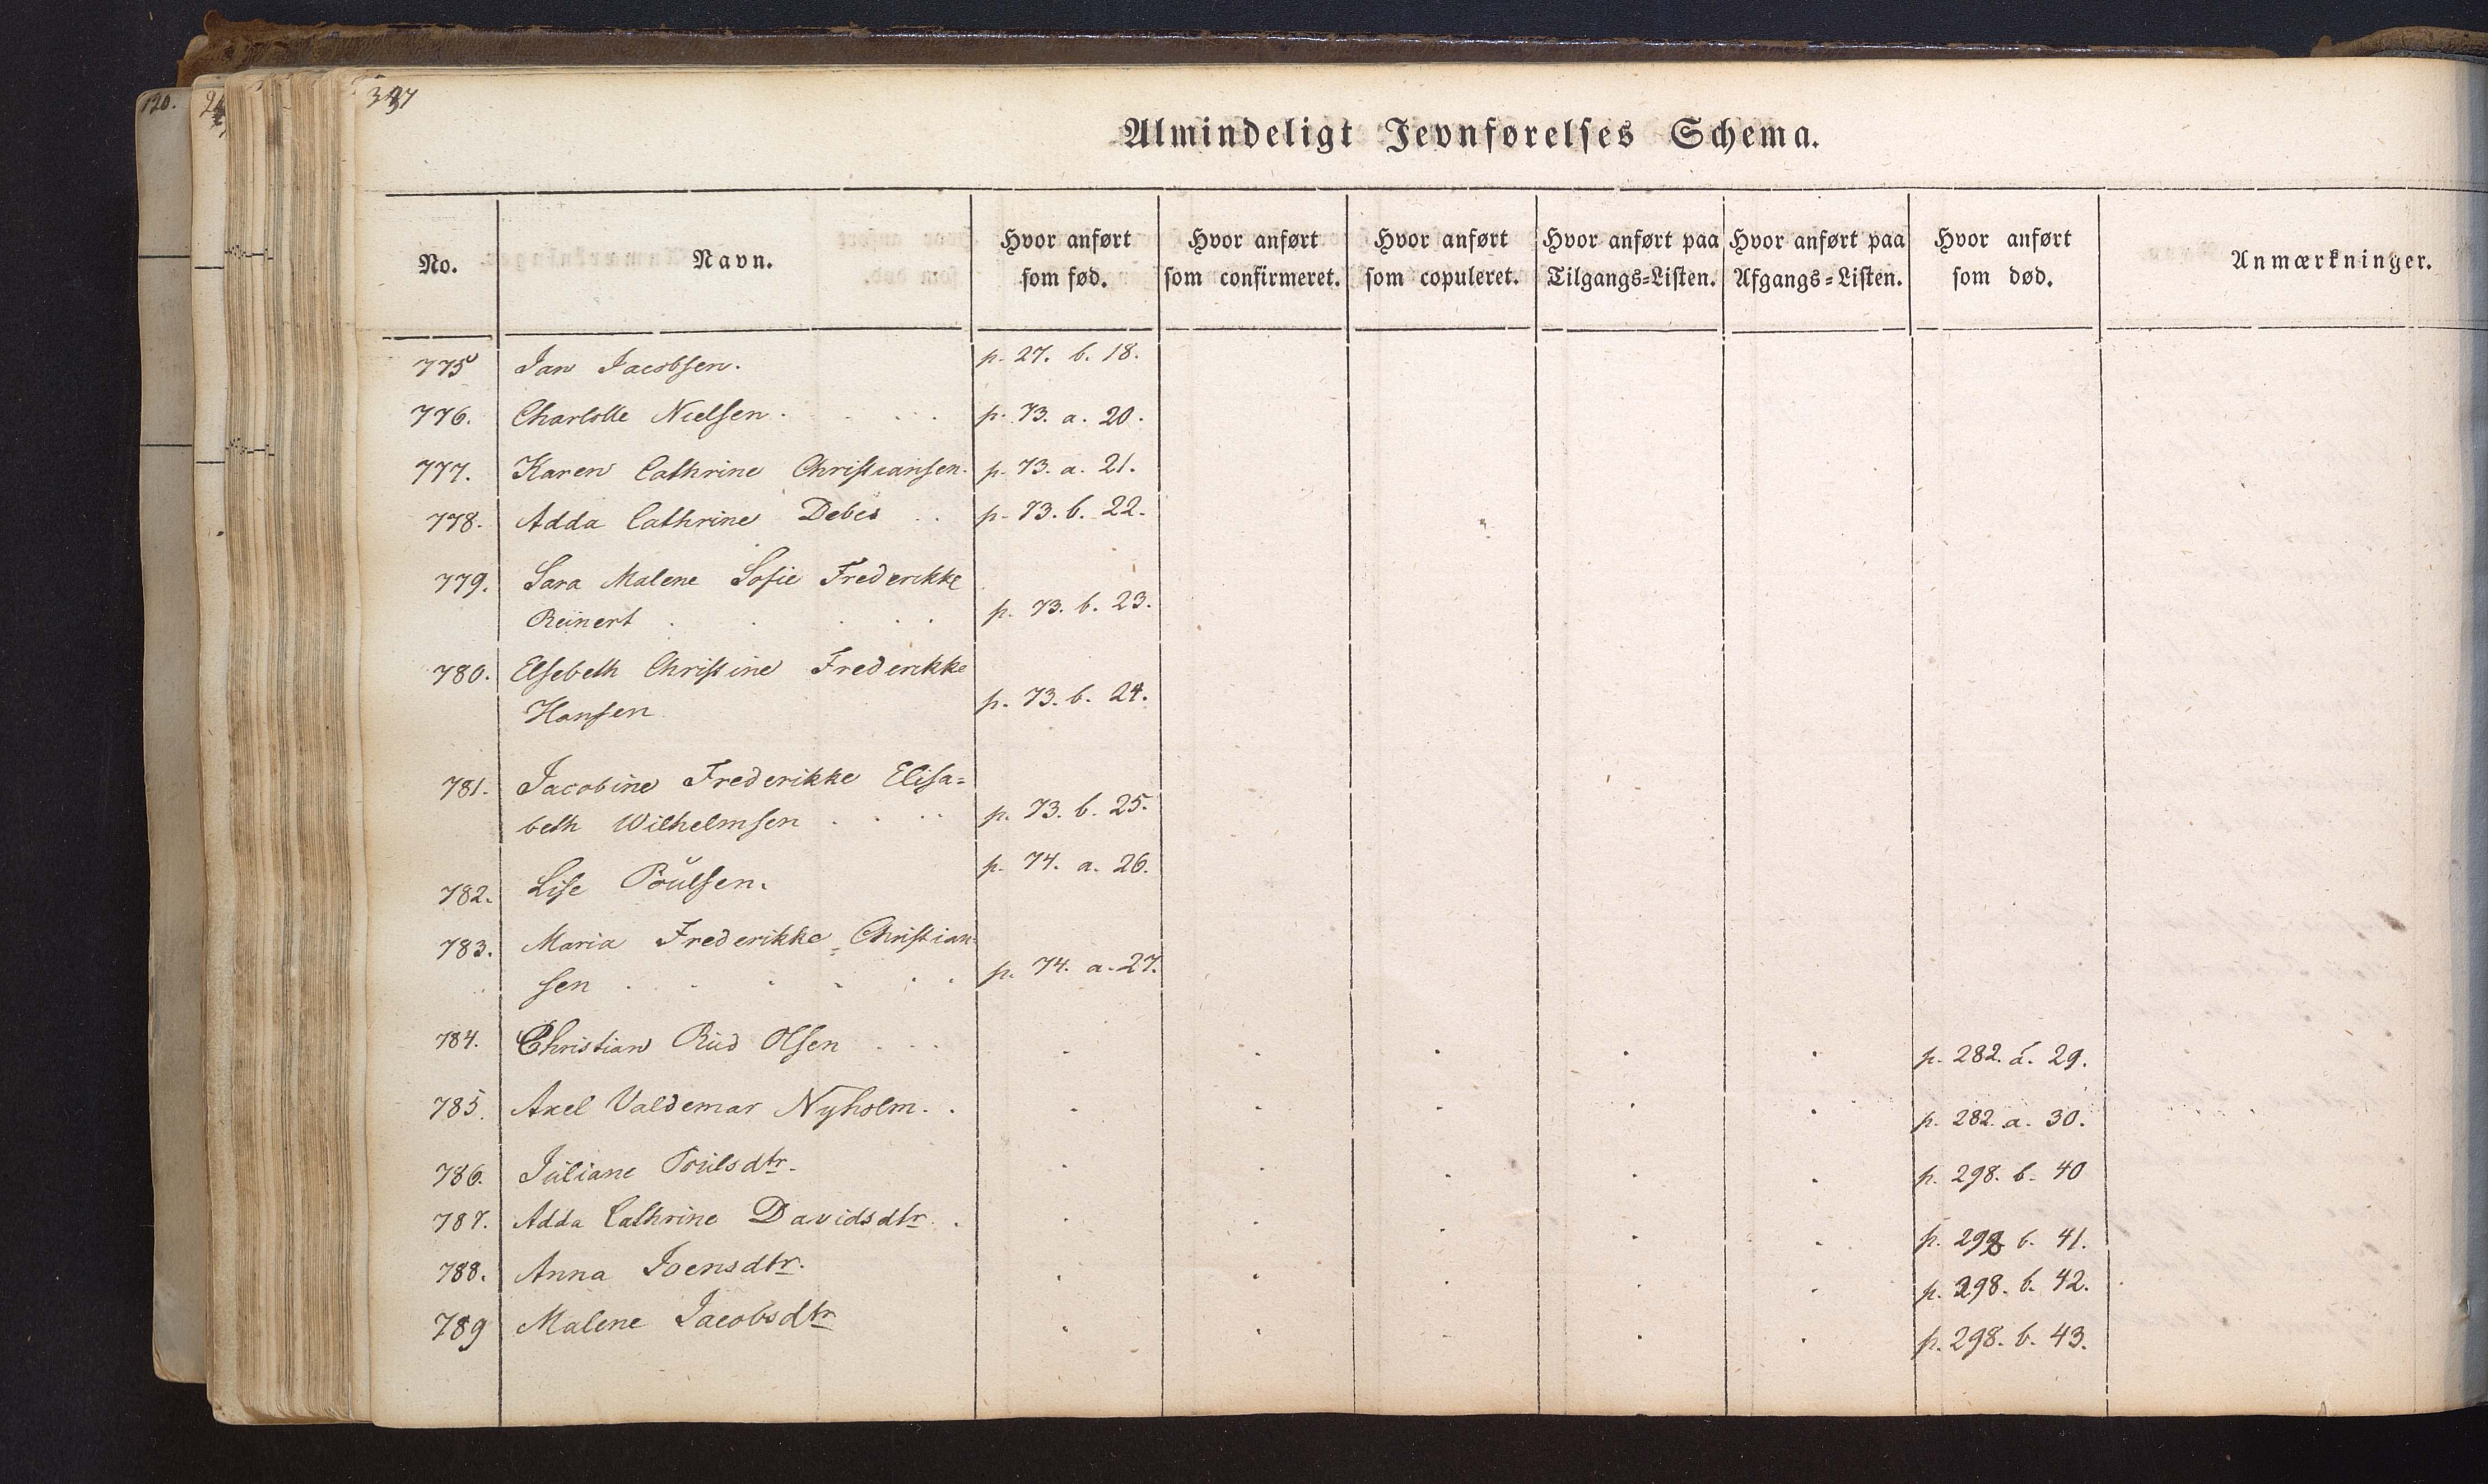 Almindeligt Jevnførelses Schema.
No. Navn. Hvor anført som fød. Hvor anført som confirmeret. Hvor anført som copuleret. Hvor anført paa Tilgangs=Listen. Hvor anført paa Afgangs=Listen. Hvor anført som død. Anmærkninger.
775 Jan Jacobsen. p. 27. b. 18.
776. Charlotte Nielsen. p. 73. a. 20.
777. Karen Cathrine Christiansen. p. 73. a. 21.
778. Adda Cathrine Debes p. 73. b. 22.
779. Sara Malene Sofie Frederikke
Reinert p. 73. b. 23.
780. Elsebeth Christine Frederikke
Hansen p. 73. b. 24.
781. Jacobine Frederikke Elisa=
beth Wilhelmsen p. 73. b. 25.
782. Lise Poulsen. p. 74. a. 26.
783. Maria Frederikke Christian=
sen p. 74. a. 27.
784. Christian Rud Olsen p. 282. a. 29.
785. Axel Valdemar Nyholm. p. 282. a. 30.
786. Juliane Poulsdtr. p. 298. b. 40
787. Adda Cathrine Davidsdtr. p. 298 b. 41.
788. Anna Joensdtr. p. 298. b. 42.
789 Malene Jacobsdtr p. 298. b. 43.
120.